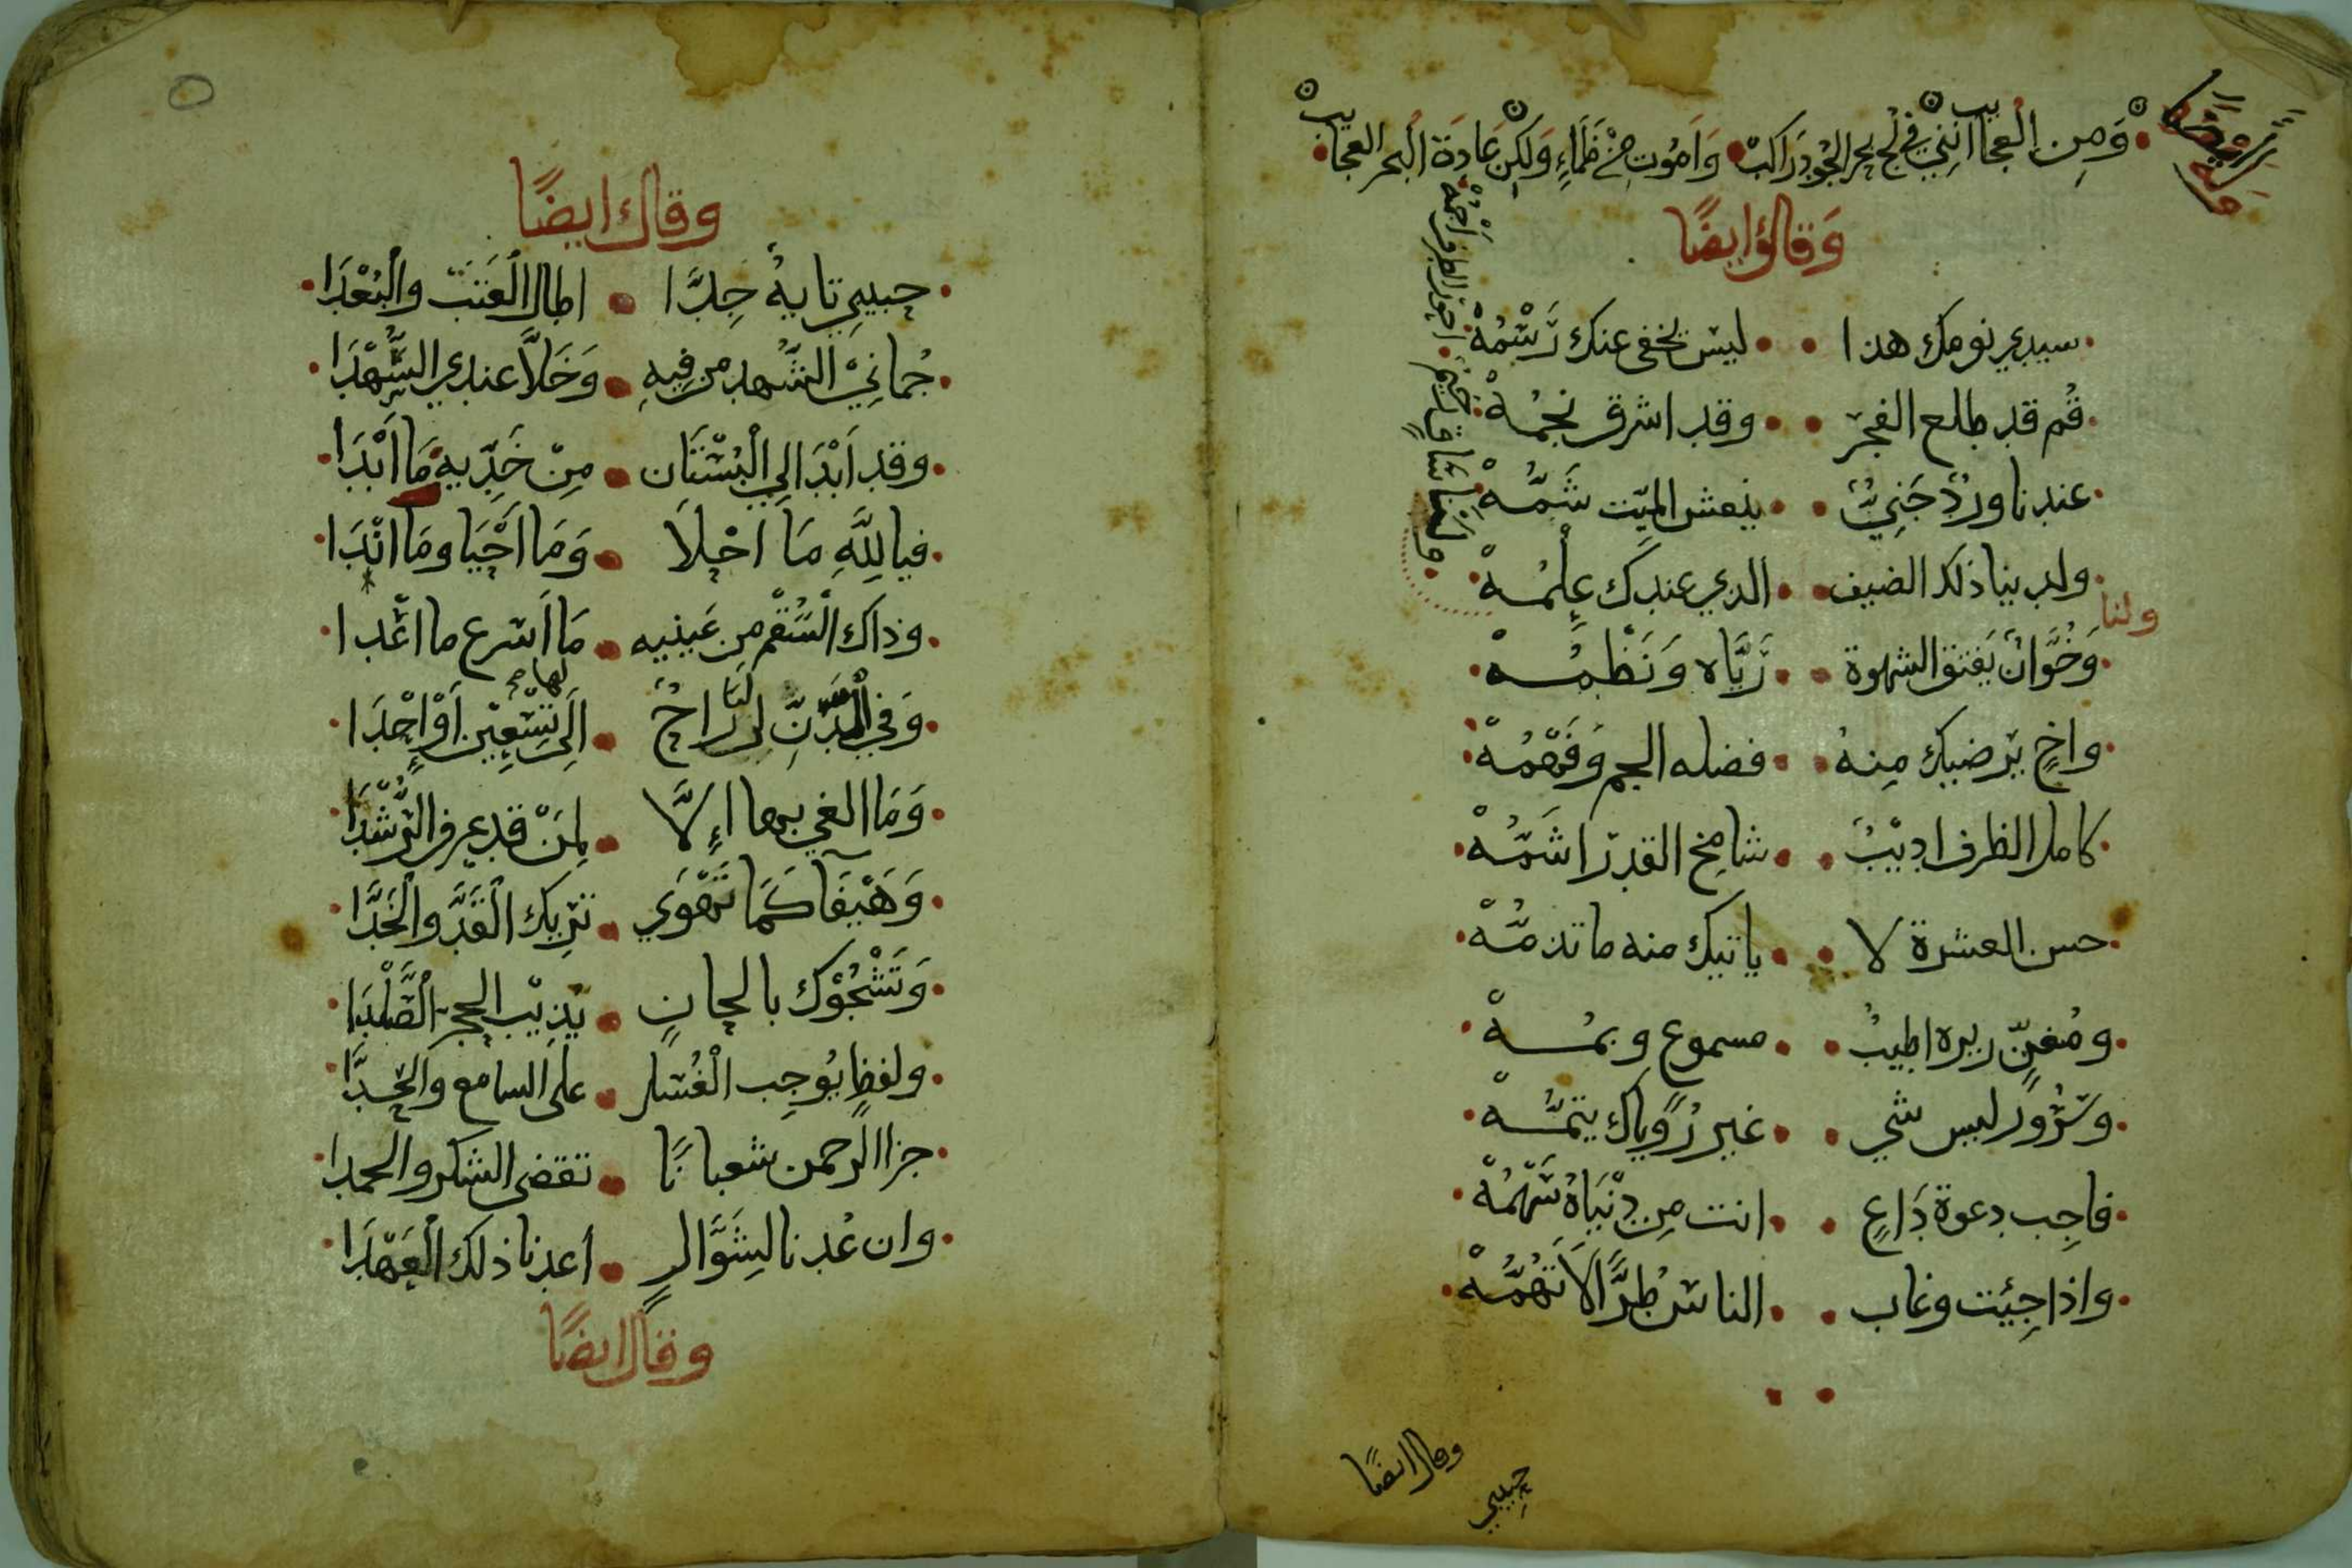 وَمِن العجايب انني في لج بحر الجود راكب وَاَمُوت مِنْ ظَمَاءٍ وَلَكِن عَادَة البحر العجايب
وَقال ايضًا
سيدي نومك هذا ليس يخفى عنك رَسْمُهْ
قُم قد طلع الفجر وقد اشرق نجمُهْ
عندنا وردٌ جَنِيٌّ ينعش الميّت شَمُّهْ
ولدينا ذلك الضيف الدي عندك عِلْمُهْ
ولنا
وَخُوَّانٌ يَفتق الشهوة رَيَّاه وَنَظْمُهْ
واخٍ يرضيك مِنهُ فضله الجم وَفَهْمُهْ
كامل الظرف اديْبٌ شامخ القدر اشَمُّهْ
حسن العشرة لا ياتيك منه ما تذمُّهْ
ومُغنٍّ زيره اطيبُ مسموعٍ وبمُهْ
وسُرُورٌ ليس شي غير رُوياك يتمُّهْ
فاجِب دعوة دَاعٍ انت مِن دِنْيَاهُ سَهْمُهْ
واذا جِئت وغاب الناس طُرًّا لَا تَهُمُّهْ
وقال ايضًا
حبيبي
وقال ايضًا
حبيبي تايهٌ جِدَّا اطال العَتبَ والبُعْدَا
حُمانِيْ الشَّهد من فِيهِ وَخَلَّا عندي السُّهْدَا
وقد اَبْدَا الي الْبُسْتَان مِنْ خَدِّيهِ مَا اَبْدَا
فيا للهِ مَا احْلَا وَمَا اَحْيَا ومَا انْدَا
وذاك السُّقْم من عَينيه مَا اَسرع ما اعْدا
وَفي الْدَّنّ لنا رَاحٌ لها الَى تِسْعِين اَوْ اِحْدَا
وَمَا الغي بها اِلَّا لِمَنْ قد عرف الرُّشْدَا
وَهَيْفَا كَمَا تَهْوَي تريك الْقَدَّ والْخَدَّا
وَتَشْجُوْك بالحانٍ يُذِيْب الحجر الصَّلْدَا
ولفظٍ يُوجِب الْغُسل على السامع والحَدَّا
جزا الرحمن شعبانًا تقضى الشكر والحمدا
وان عُدنا لِشَوَّالٍ اَعدنا ذلك الْعَهْدَا
وقال ايضًا